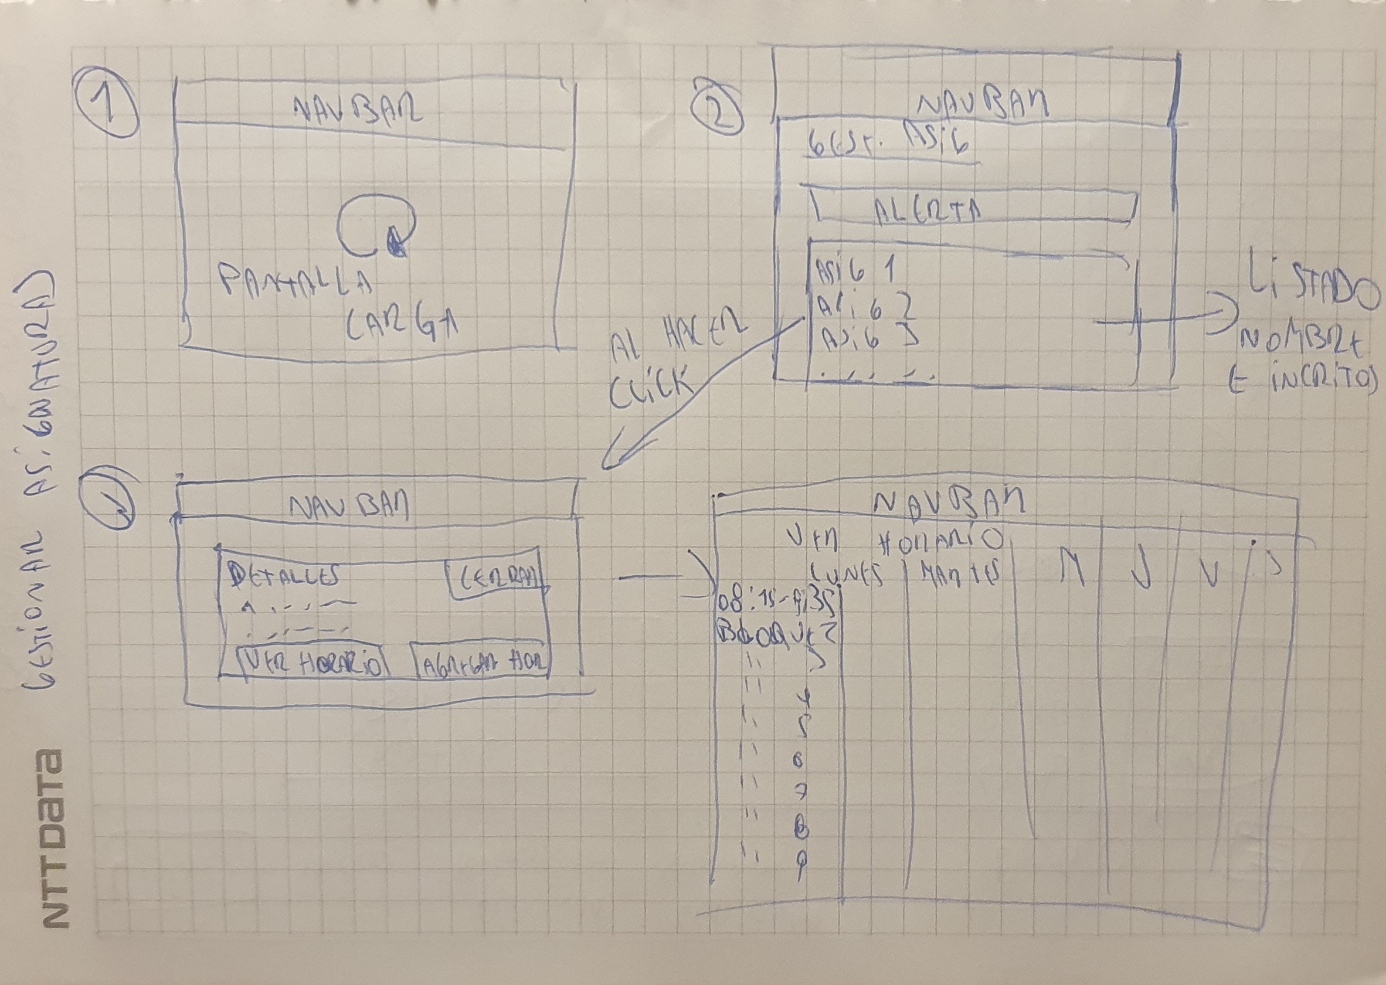 GESTIONAR ASIGNATURA)
NTTDATA
1
NAVBAR
PANTALLA
CARGA
2
NAVBAR
GEST. ASIG
ALERTA
ASIG 1
ASIG 2
ASIG 3
. . . . .
LISTADO
NOMBRE
E INCRITO)
AL HACER
CLICK
3
NAVBAR
DETALLES
CERRAR
VER HORARIO
AGREGAR HOR
NAVBAR
VER HORARIO
LUNES MARTES M J V S
08:15-9:35
BLOQUE 2
" 3
" 4
" 5
" 6
" 7
" 8
" 9